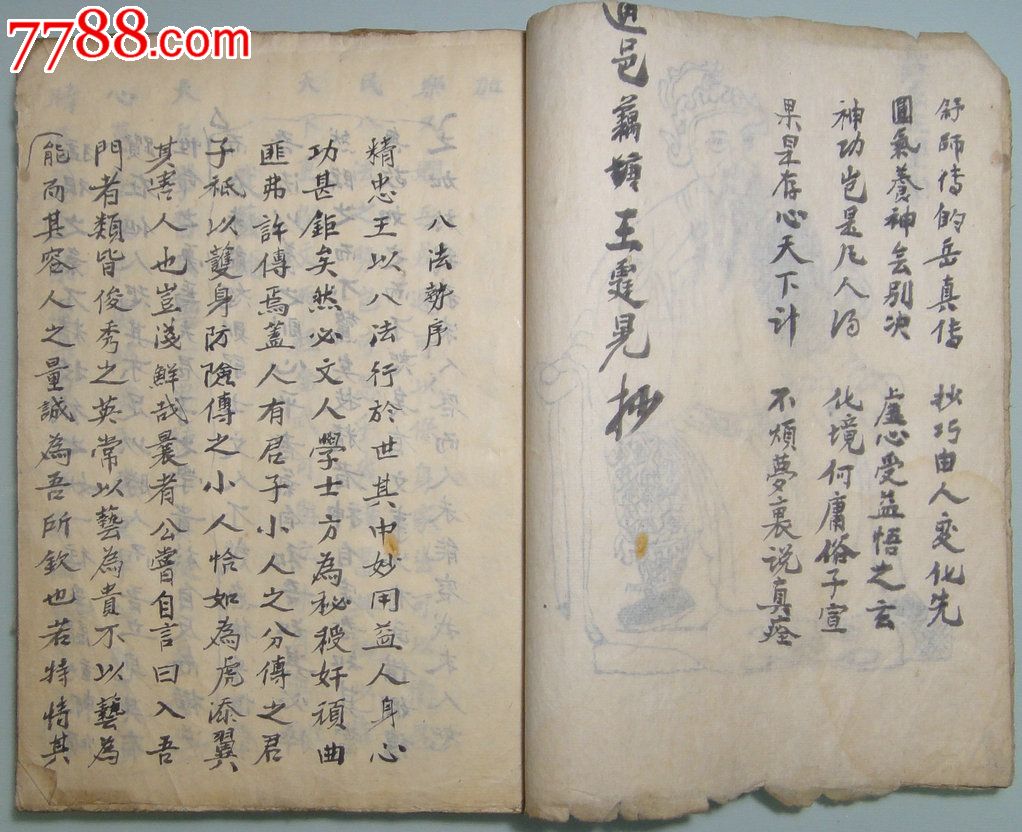 7788.com
舒師傳的岳真传 抄巧由人变化先
圓氣養神会别决 虚心受益悟之玄
神功岂是凡人为 化境何庸俗子宣
果是存心天下计 不煩夢裏说真
邑藕塘王霆晃抄
八法勢序
精忠王以八法行於世其中妙用益人身心
功甚鉅矣然必文人學士方為秘授奸頑曲
匪弗許傳焉蓋人有君子小人之分傳之君
子祗以護身防險傳之小人恰如為虎添翼
其害人也豈淺鮮哉曩者公嘗自言曰入吾
門者類皆俊秀之英常以藝為貴不以藝為
能而其容人之量誠為吾所欽也若特恃其